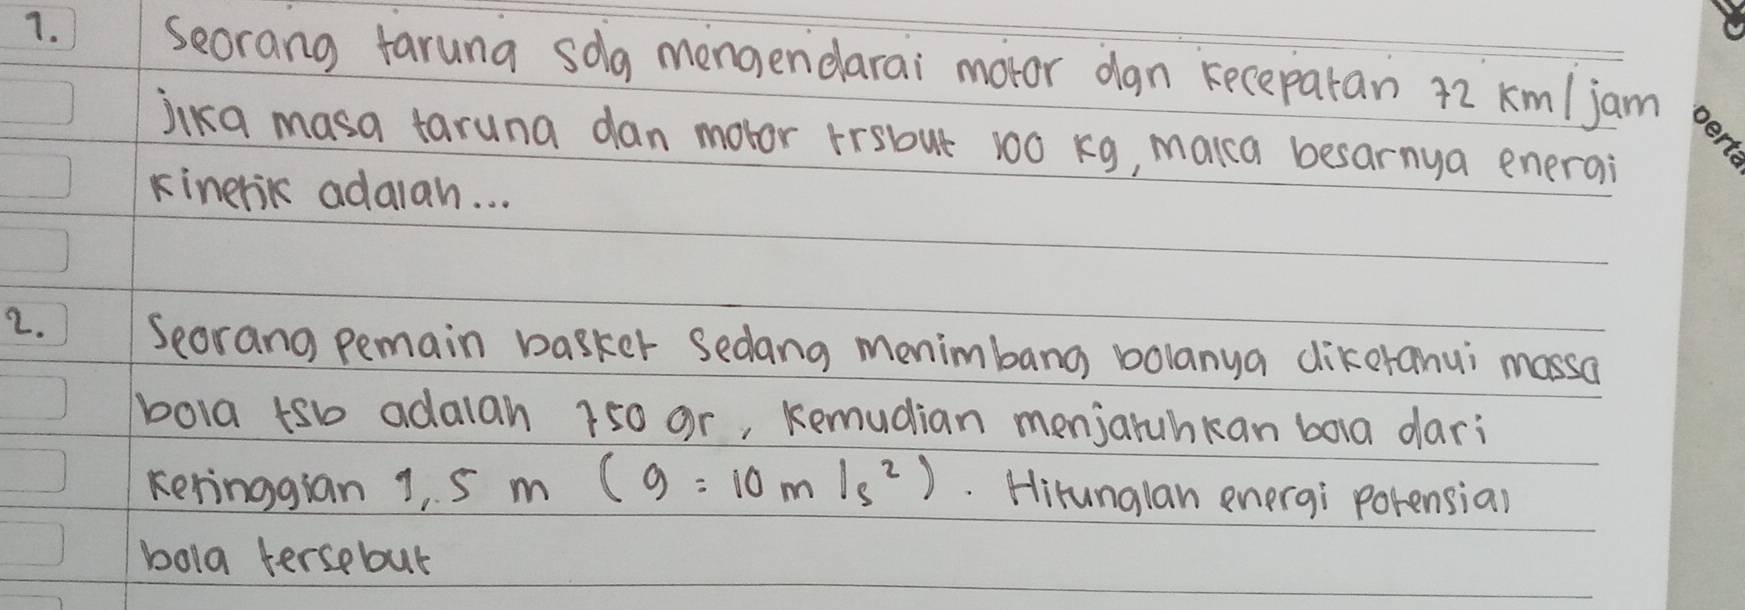 1. Seorang taruna sdg mengendarai motor dgn kecepatan 72 km/jam
jika masa taruna dan motor trsbut 100 kg, maka besarnya energi
kinetik adalah...
2. Seorang pemain basket sedang menimbang bolanya diketahui massa
bola tsb adalah 750 gr, kemudian menjatuhkan bola dari
ketinggian 1,5 m (g = 10 m/s²). Hitunglan energi potensial
bola tersebut